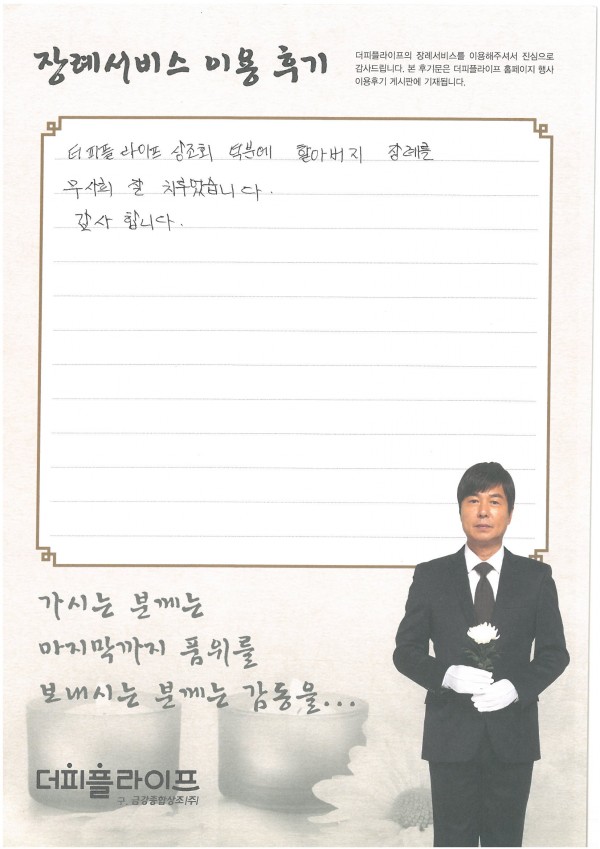 장례서비스 이용 후기
더피플라이프의 장례서비스를 이용해주셔서 진심으로
감사드립니다. 본 후기문은 더피플라이프 홈페이지 행사
이용후기 게시판에 기재됩니다.
더피플 라이프 상조회 덕분에 할아버지 장례를
무사히 잘 치루었습니다.
감사 합니다.
가시는 분께는
마지막까지 품위를
보내시는 분께는 감동을...
더피플라이프
구. 금강종합상조(주)